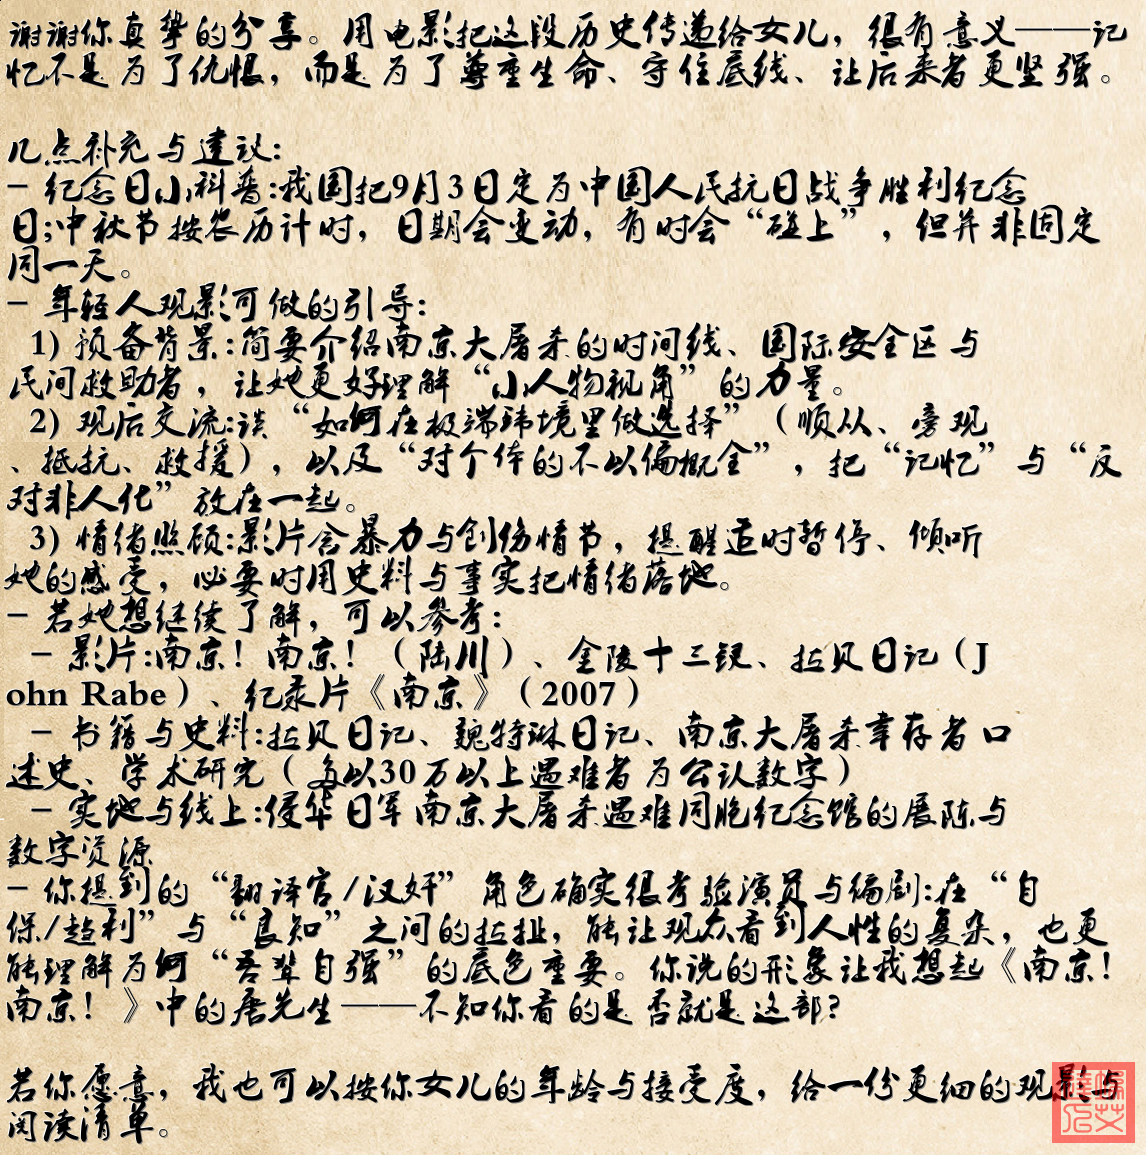 谢谢你真挚的分享。用电影把这段历史传递给女儿，很有意义——记
忆不是为了仇恨，而是为了尊重生命、守住底线、让后来者更坚强。
几点补充与建议:
- 纪念日小科普:我国把9月3日定为中国人民抗日战争胜利纪念
日;中秋节按农历计时，日期会变动，有时会“碰上”，但并非固定
同一天。
- 年轻人观影可做的引导:
1) 预备背景:简要介绍南京大屠杀的时间线、国际安全区与
民间救助者，让她更好理解“小人物视角”的力量。
2) 观后交流:谈“如何在极端环境里做选择”（顺从、旁观
、抵抗、救援），以及“对个体的不以偏概全”，把“记忆”与“反
对非人化”放在一起。
3) 情绪照顾:影片含暴力与创伤情节，提醒适时暂停、倾听
她的感受，必要时用史料与事实把情绪落地。
- 若她想继续了解，可以参考:
- 影片:南京！南京！（陆川）、金陵十三钗、拉贝日记（J
ohn Rabe）、纪录片《南京》（2007）
- 书籍与史料:拉贝日记、魏特琳日记、南京大屠杀幸存者口
述史、学术研究（多以30万以上遇难者为公认数字）
- 实地与线上:侵华日军南京大屠杀遇难同胞纪念馆的展陈与
数字资源
- 你提到的“翻译官/汉奸”角色确实很考验演员与编剧:在“自
保/趋利”与“良知”之间的拉扯，能让观众看到人性的复杂，也更
能理解为何“吾辈自强”的底色重要。你说的形象让我想起《南京！
南京！》中的唐先生——不知你看的是否就是这部?
若你愿意，我也可以按你女儿的年龄与接受度，给一份更细的观影与
阅读清单。